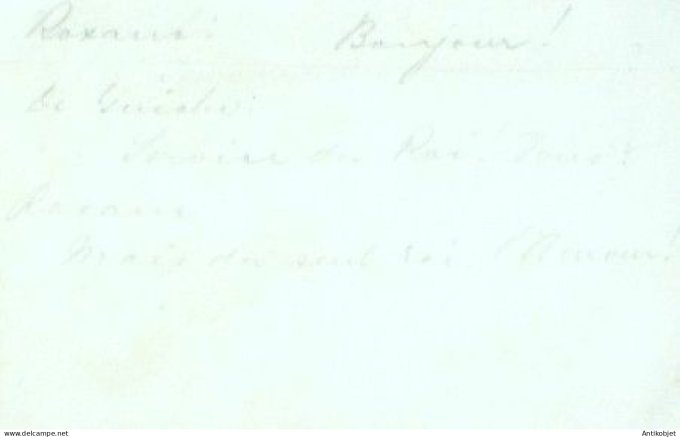 Roxane: Bonjour!
De Guiche:
Service du Roi! Vous?
Roxane
Mais du seul roi l'Amour!
www.delcampe.net
Antikobjet